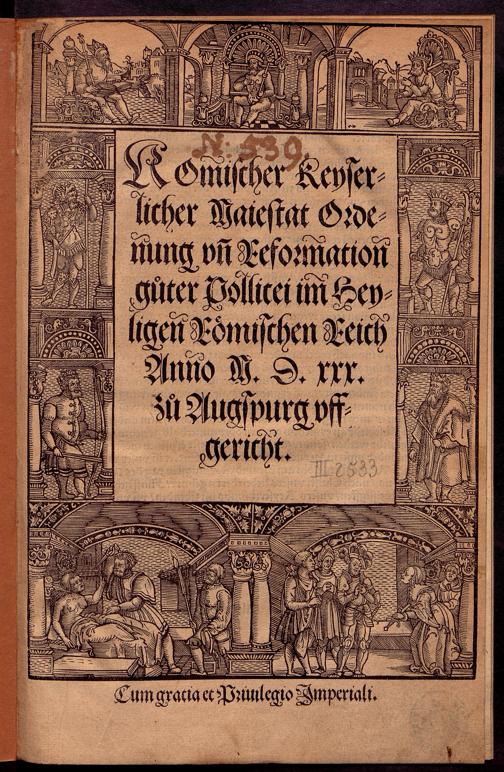 N: 539.
Römischer Keyser-
licher Maiestat Orde-
nung vñ Reformation
gůter Pollicei im̃ Hey-
ligen Römischen Reich
Anno M. D. xxx.
zů Augspurg vff-
gericht.
III 2533
Cum gratia et Priuilegio Imperiali.